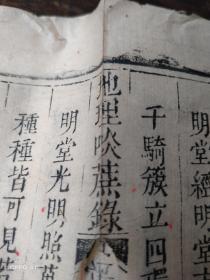 明堂經明堂
千騎簇立四
地理啖蔗錄
明堂光明照萬
種種皆可見